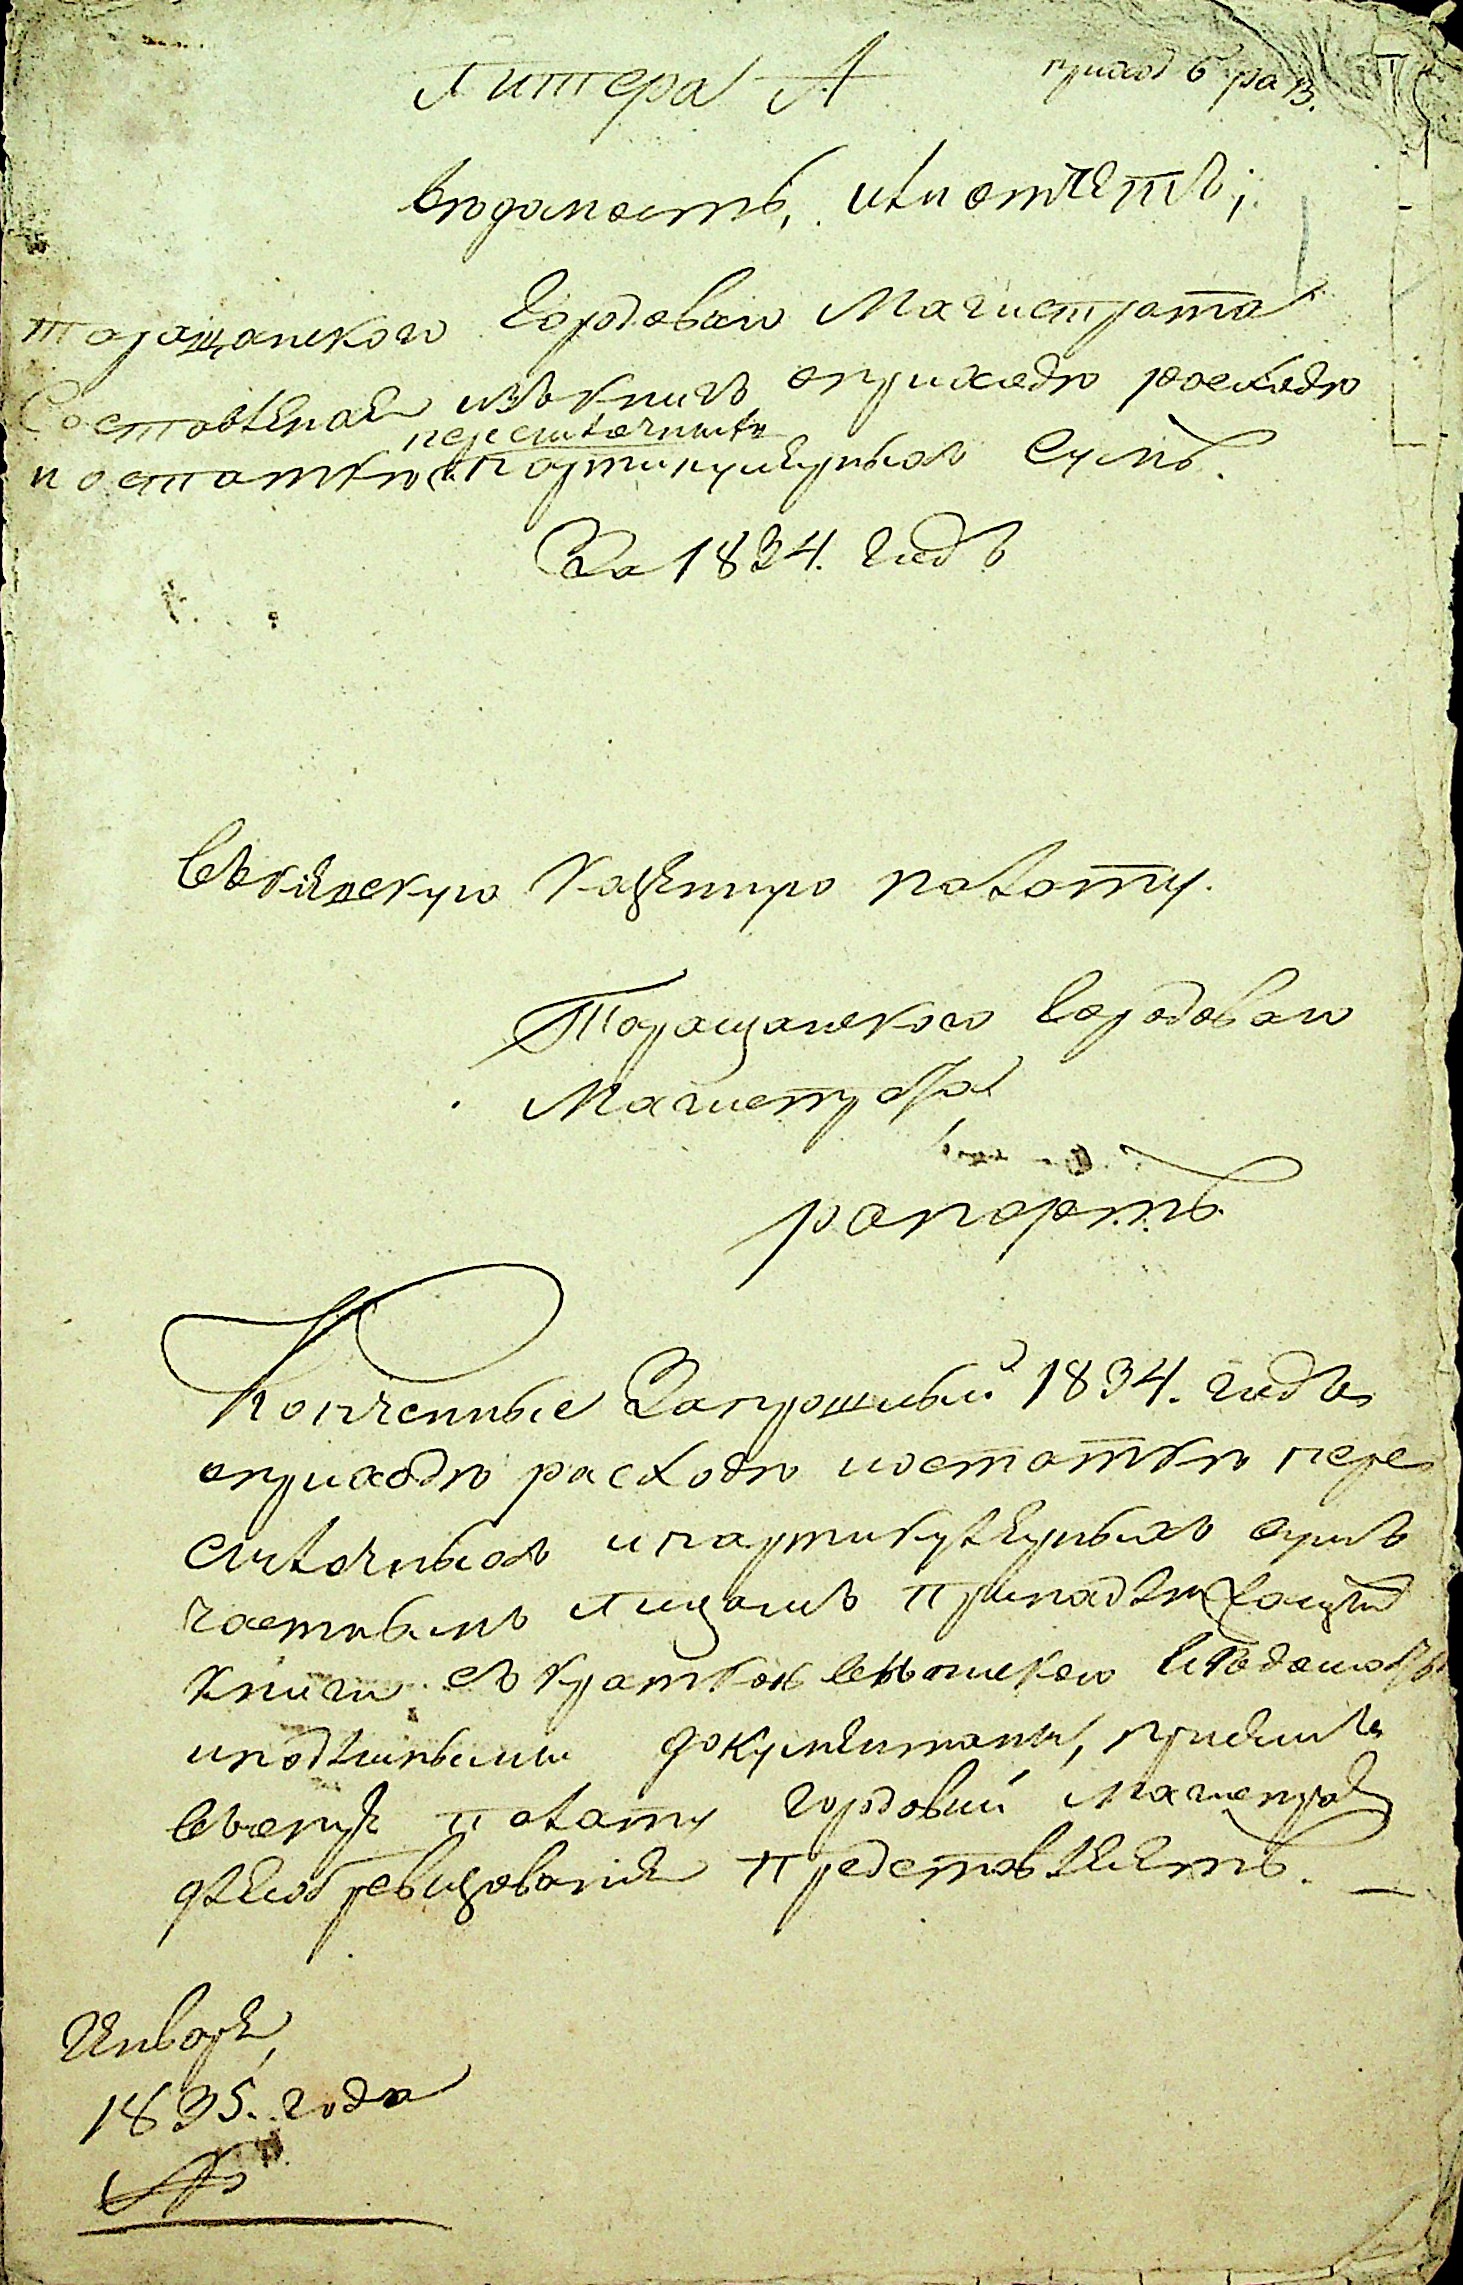 Литера А
приход 6 раз.
Ведомость, или отчетъ;
таращанского Городоваго Магистрата
Составленая изъ книгъ оприходе росходе
пересилочныхъ
и остатке партикулярныхъ Сумъ.
За 1834. годъ
Въ Киевскую Казенную полату.
Таращанского Городоваго
Магистрата
рапортъ
Конченные Запрошлый 1834. годъ
оприходе расходе иостатке пере
силочныхъ ипартикулярныхъ сумъ
частнымъ лицамъ принадлежащихъ
книги съ краткою ведомостью
иподлиными документами, при семъ
въ оную полату городовый Магистратъ
для обревизования представляетъ.
Января
1835. года
№